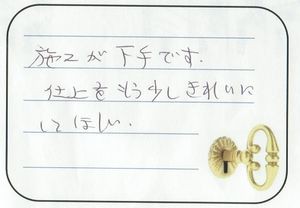 施工が下手です.
仕上をもう少しきれいに
してほしい.